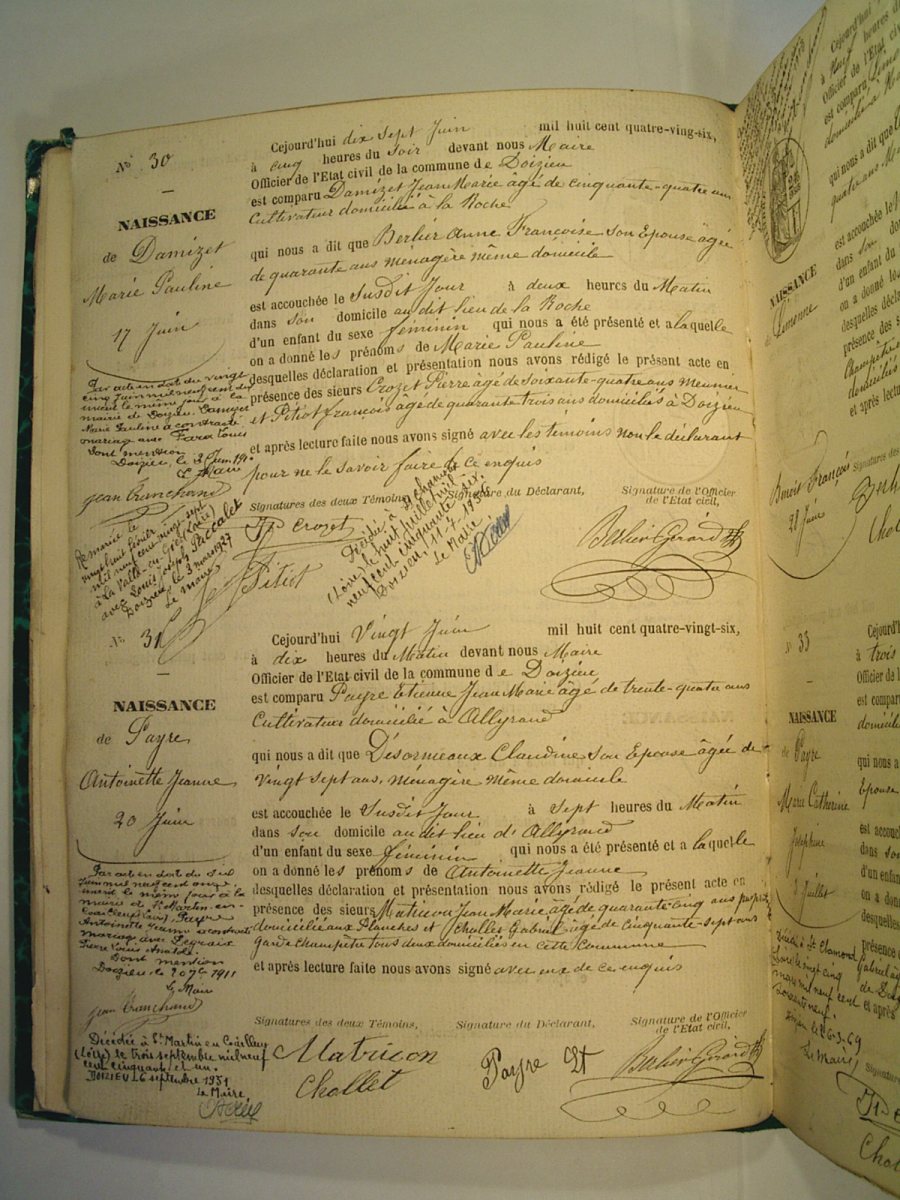 N° 30
NAISSANCE
de Damizet
Marie Pauline
17 Juin
Cejourd'hui dix sept Juin mil huit cent quatre-ving-six,
à cinq heures du soir devant nous Maire
Officier de l'Etat civil de la commune de Doizieu
est comparu Damizet Jean Marie âgé de cinquante-quatre ans
Cultivateur domicilié à la Roche
qui nous a dit que Berlier Anne Françoise son Epouse âgée
de quarante ans menagère même domicile
est accouchée le Susdit Jour à deux heures du Matin
dans son domicile au dit lieu de la Roche
d'un enfant du sexe féminin qui nous a été présenté et a laquelle
on a donné les prénoms de Marie Pauline
desquelles déclaration et présentation nous avons rédigé le présent acte en
présence des sieurs Crozet Pierre âgé de soixante-quatre ans Meunier
et Pitiot françois âgé de quarante trois ans domiciliés à Doizieu
et après lecture faite nous avons signé avec les témoins non le déclarant
pour ne le savoir faire de ce enquis
Signatures des deux Témoins, Signature du Déclarant, Signature de l'Officier
de l'Etat civil,
Crozet
Pitiot
Berlier Gérard
Par acte en date du vingt
cinq Juin mil neuf cent dix
mairie de Doizieu Damizet
Marie Pauline a contracté
mariage avec Fara Louis
Dont mention
Le Maire
Jean Tranchand
Remariée le
vingt huit février
mil neuf cent vingt sept
à La Valla-en-Gier (Loire)
avec Louis Joseph Pascalet
Doizieu le 3 mars 1927
Le maire
Décédée à St Chamond
(Loire) le huit juillet mil
neuf cent cinquante six.
Doizieu, 11-7-1956
Le Maire
N° 31
NAISSANCE
de Payre
Antoinette Jeanne
20 Juin
Cejourd'hui Vingt Juin mil huit cent quatre-vingt-six,
à dix heures du Matin devant nous Maire
Officier de l'Etat civil de la commune de Doizieu
est comparu Payre Etienne Jean Marie âgé de trente-quatre ans
Cultivateur domicilié à Allyrand
qui nous a dit que Désormeaux Claudine son Epouse âgée de
vingt sept ans, menagère même domicile
est accouchée le Susdit Jour à sept heures du Matin
dans son domicile au dit lieu d'Allyrand
d'un enfant du sexe féminin qui nous a été présenté et a laquelle
on a donné les prénoms de Antoinette Jeanne
desquelles déclaration et présentation nous avons rédigé le présent acte en
présence des sieurs Matricon Jean Marie âgé de quarante cinq ans
domicilié aux Planches et Chollet Gabriel âgé de cinquante-sept ans
Garde champetre tous deux domiciliés en cette Commune
et après lecture faite nous avons signé avec eux de ce enquis
Signatures des deux Témoins, Signature du Déclarant, Signature de l'Officier
de l'Etat civil,
Matricon
Chollet
Payre Et
Berlier Gérard
Par acte en date du six
Juin mil neuf cent onze
mairie de St Martin en
Coailleux (Loire), Payre
Antoinette Jeanne a contracté
mariage avec
Pierre Louis Anatole.
Dont mention
Doizieu, le 20 7bre 1911
Le Maire
Jean Tranchand
Décédée à St Martin en Coailleux
(Loire) le trois septembre mil neuf
cent cinquante et un.
DOIZIEU le 6 septembre 1951
Le Maire
Cejourd'hui
Officier de l'Etat civ
est comparu
domicilié à
qui nous a dit que
quatre ans
est accouchée le
dans son
d'un enfant du
on a donné
desquelles
présence des
Champêtre
domiciliés
et après lectur
NAISSANCE
Benoit François
28 Juin
Signatures des
N° 33
NAISSANCE
de Payre
Marie Catherine
Joséphine
Juillet
Cejourd'h
à trois
Officier de
est compar
domicilié
qui nous a
Epouse
est accouc
dans so
d'un enfan
on a donné
desquelles
présence
Gabriel âg
de Doiz
et après
Décédée à St Chamond
(Loire) le vingt cinq
mars mil neuf cent
soixante neuf
Le Maire
Signatu
Chol